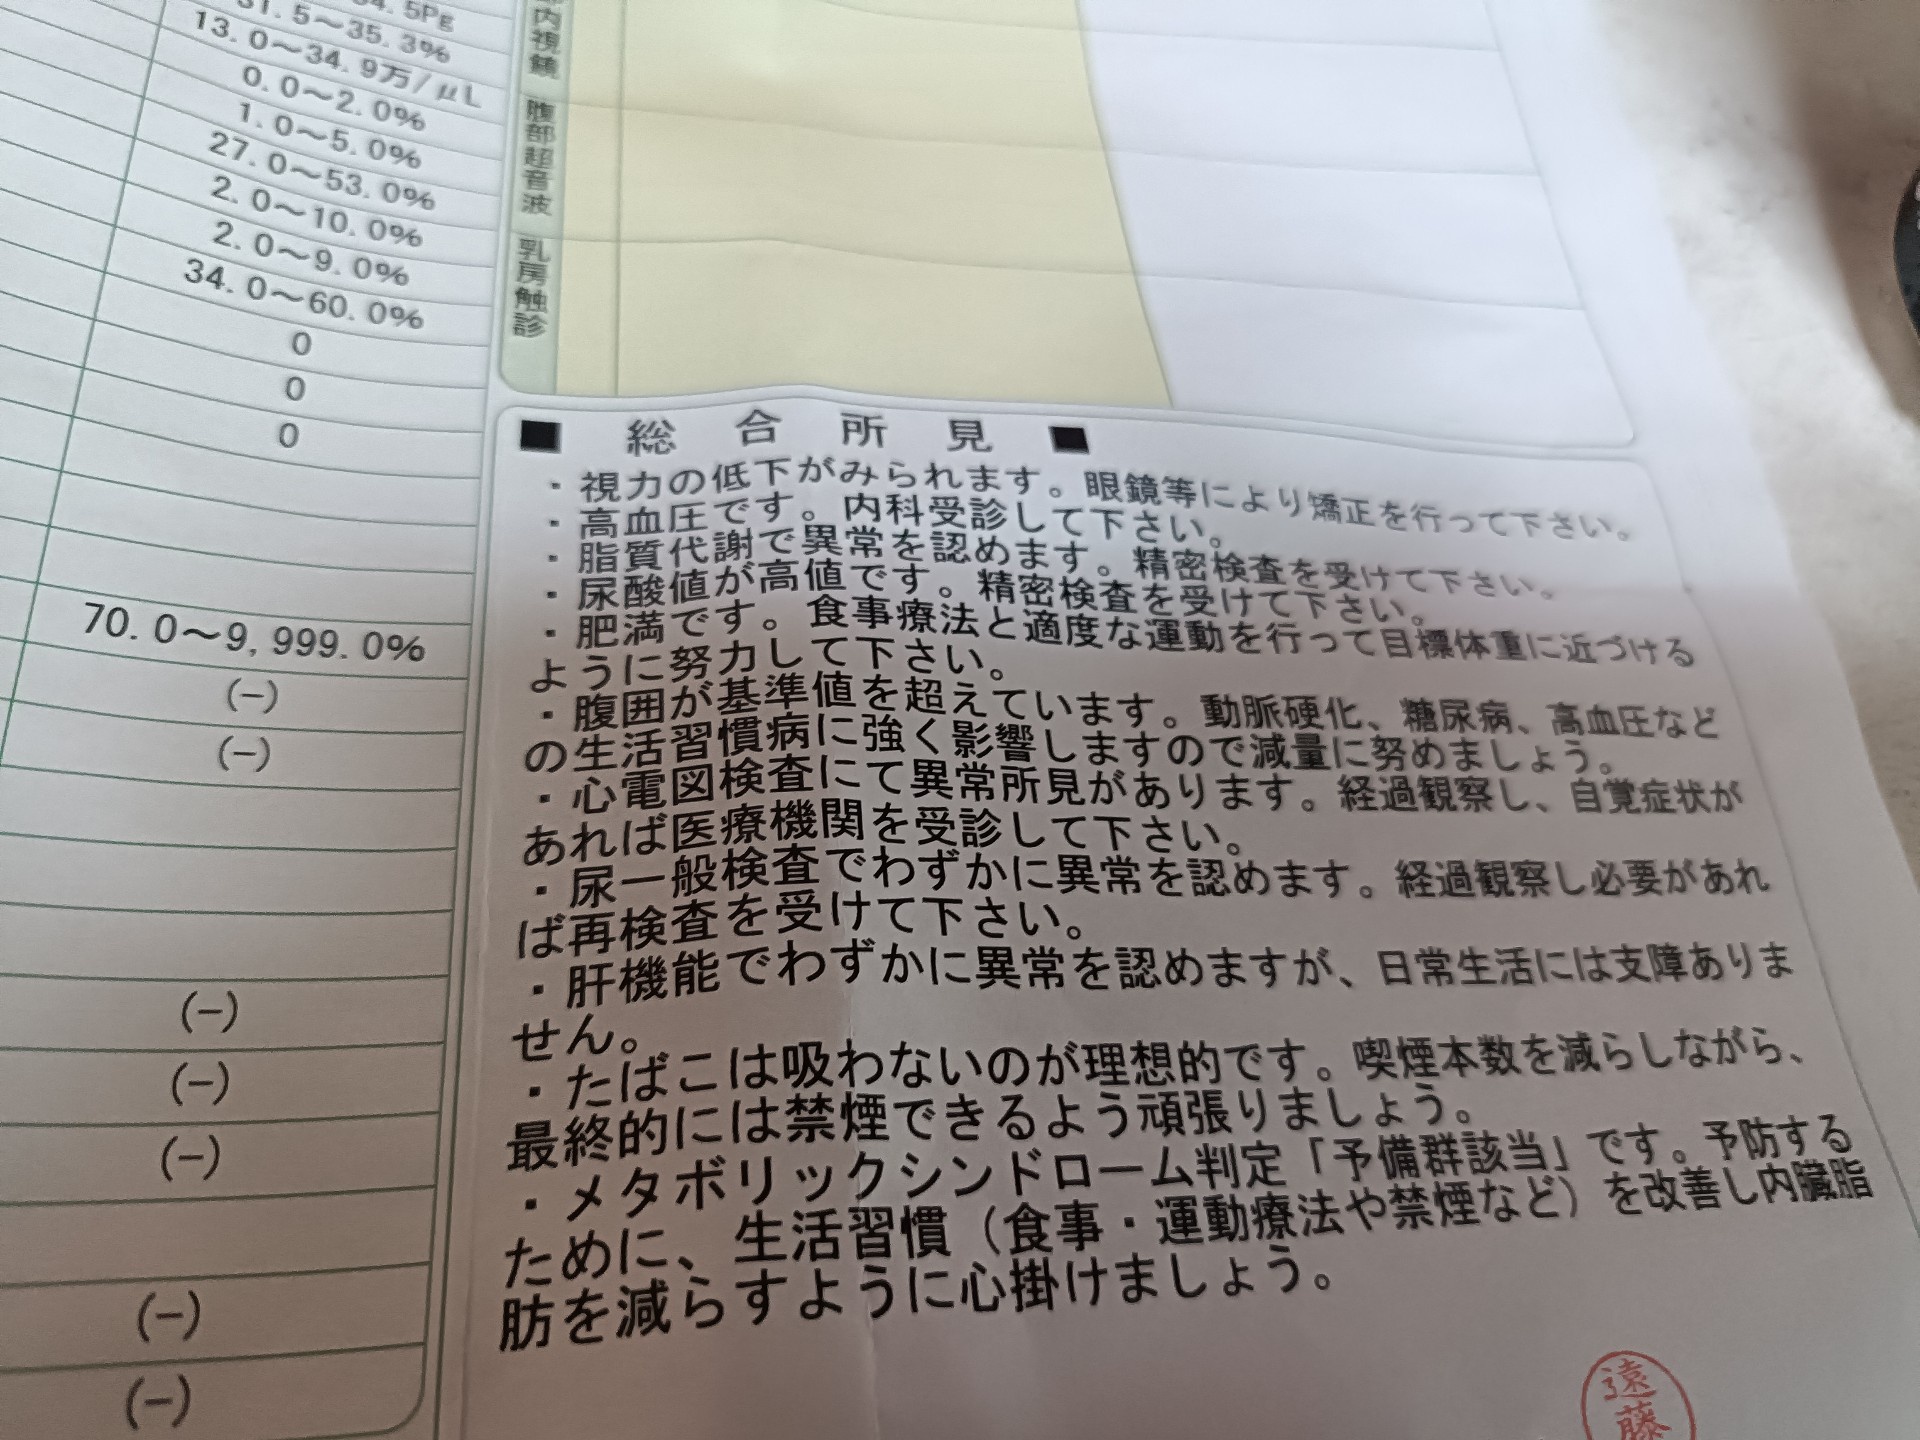 34.5Pg
31.5～35.3%
13.0～34.9万/μL
0.0～2.0%
1.0～5.0%
27.0～53.0%
2.0～10.0%
2.0～9.0%
34.0～60.0%
0
0
0
70.0～9,999.0%
(－)
(－)
(－)
(－)
(－)
(－)
(－)
内視鏡
腹部超音波
乳房触診
■ 総合所見 ■
・視力の低下がみられます。眼鏡等により矯正を行って下さい。
・高血圧です。内科受診して下さい。
・脂質代謝で異常を認めます。精密検査を受けて下さい。
・尿酸値が高値です。精密検査を受けて下さい。
・肥満です。食事療法と適度な運動を行って目標体重に近づける
ように努力して下さい。
・腹囲が基準値を超えています。動脈硬化、糖尿病、高血圧など
の生活習慣病に強く影響しますので減量に努めましょう。
・心電図検査にて異常所見があります。経過観察し、自覚症状が
あれば医療機関を受診して下さい。
・尿一般検査でわずかに異常を認めます。経過観察し必要があれ
ば再検査を受けて下さい。
・肝機能でわずかに異常を認めますが、日常生活には支障ありま
せん。
・たばこは吸わないのが理想的です。喫煙本数を減らしながら、
最終的には禁煙できるよう頑張りましょう。
・メタボリックシンドローム判定「予備群該当」です。予防する
ために、生活習慣（食事・運動療法や禁煙など）を改善し内臓脂
肪を減らすように心掛けましょう。
遠藤